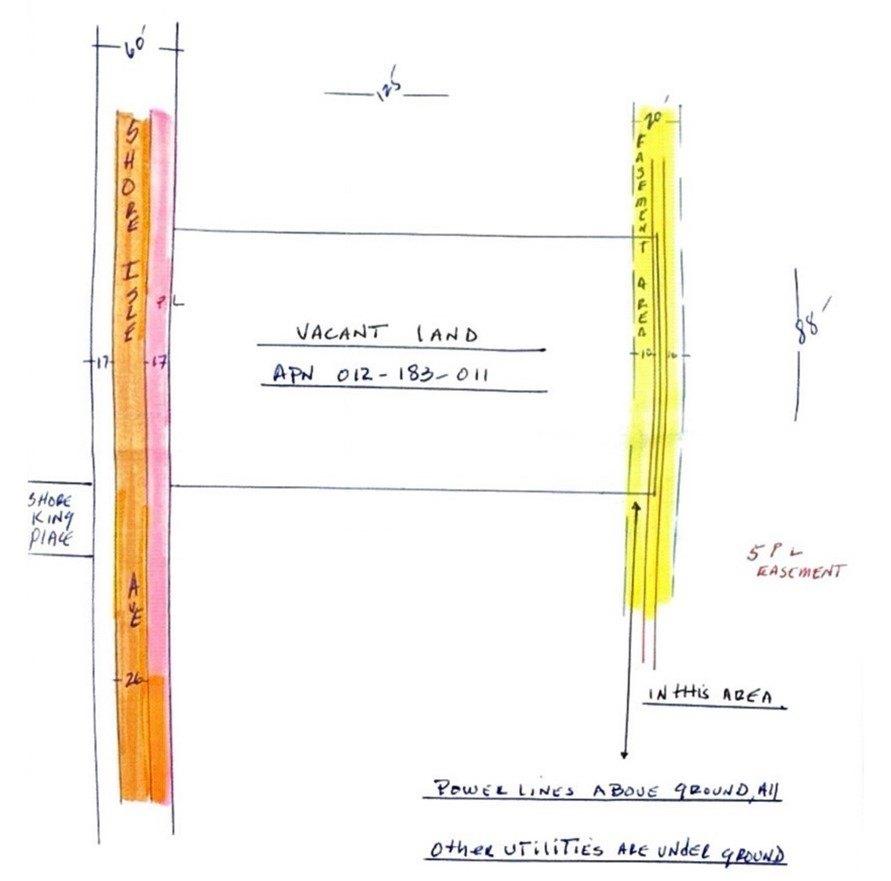 60'
125'
20'
SHORE ISLE AVE
EASEMENT AREA
P L
88'
VACANT LAND
APN 012-183-011
17
17
10
10
SHORE
KING
PLACE
5 P L
EASEMENT
26
IN tHis AREA.
POWER LINES ABOVE GROUND, All
Other UTILITIES ARE UNDER GROUND